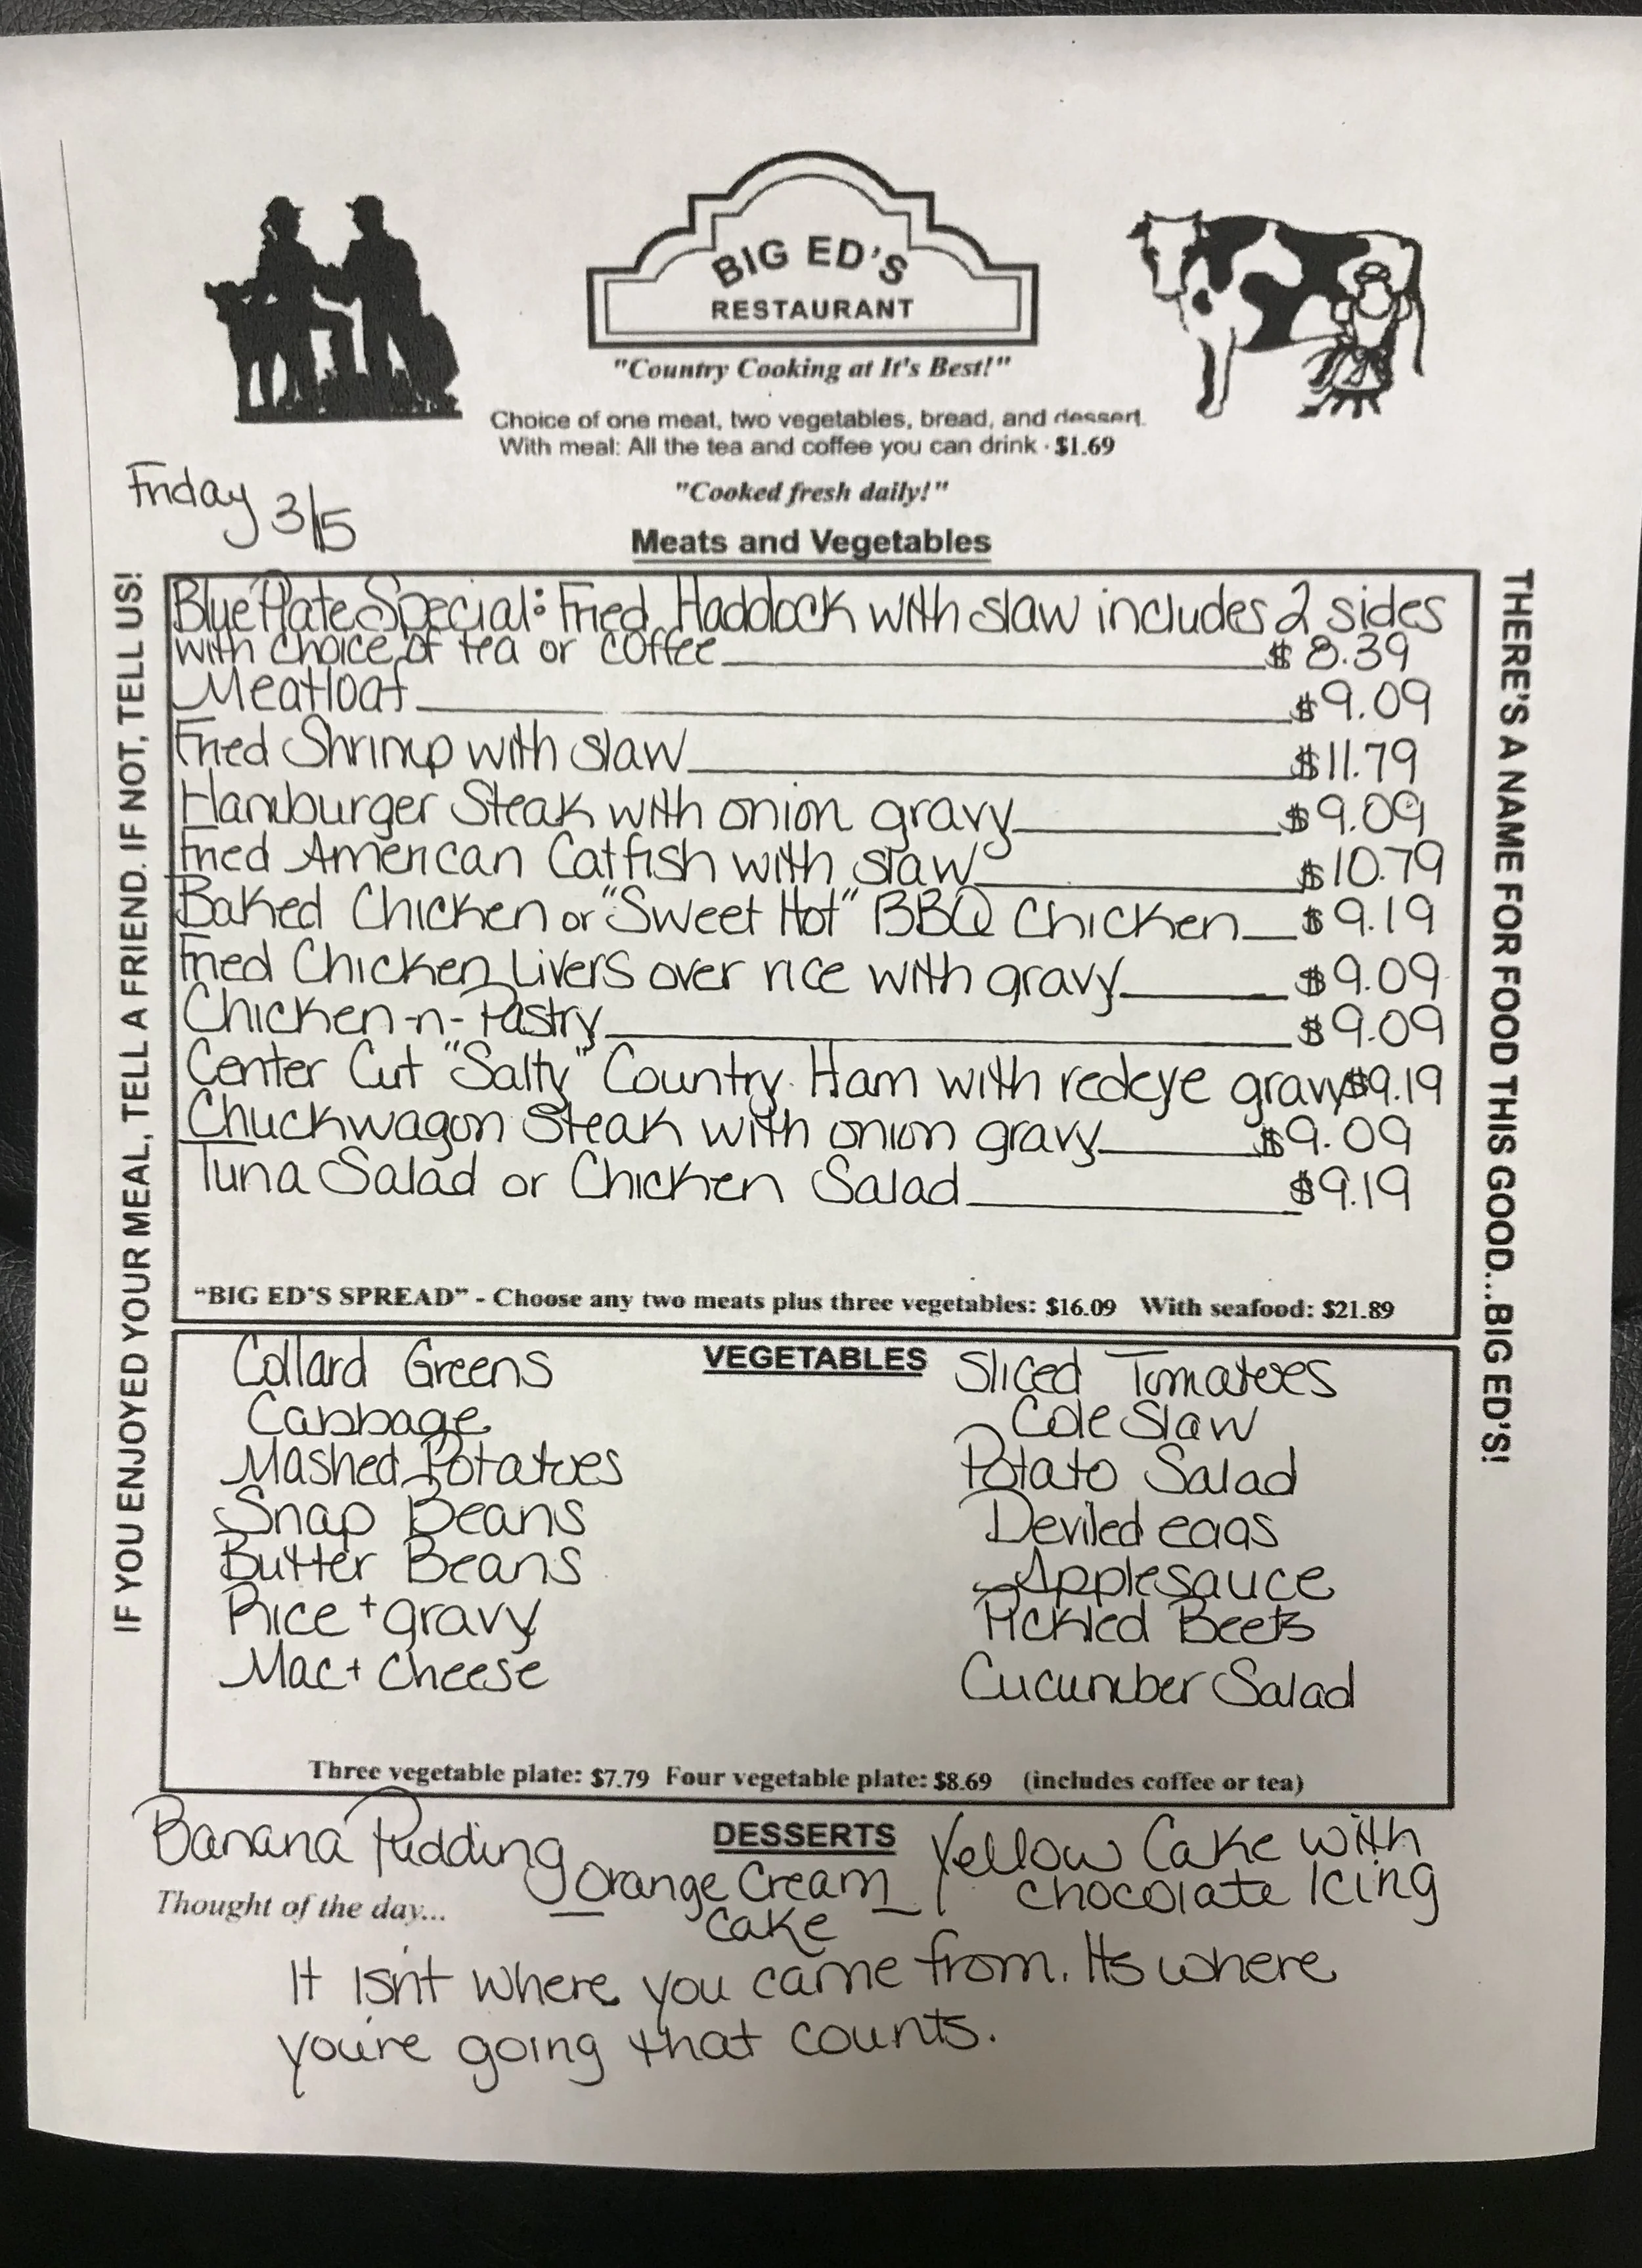 BIG ED'S
RESTAURANT
"Country Cooking at It's Best!"
Choice of one meat, two vegetables, bread, and dessert.
With meal: All the tea and coffee you can drink · $1.69
Friday 3/5
"Cooked fresh daily!"
Meats and Vegetables
IF YOU ENJOYED YOUR MEAL, TELL A FRIEND. IF NOT, TELL US!
Blue Plate Special: Fried Haddock with slaw includes 2 sides
with choice of tea or coffee $8.39
Meatloaf $9.09
Fried Shrimp with slaw $11.79
Hamburger Steak with onion gravy $9.09
Fried American Catfish with slaw $10.79
Baked Chicken or "Sweet Hot" BBQ Chicken $9.19
Fried Chicken Livers over rice with gravy $9.09
Chicken-n-Pastry $9.09
Center Cut "Salty" Country Ham with redeye gravy $9.19
Chuckwagon Steak with onion gravy $9.09
Tuna Salad or Chicken Salad $9.19
"BIG ED'S SPREAD" - Choose any two meats plus three vegetables: $16.09 With seafood: $21.89
THERE'S A NAME FOR FOOD THIS GOOD...BIG ED'S!
VEGETABLES
Collard Greens
Cabbage
Mashed Potatoes
Snap Beans
Butter Beans
Rice + gravy
Mac + Cheese
Sliced Tomatoes
Cole Slaw
Potato Salad
Deviled eggs
Applesauce
Pickled Beets
Cucumber Salad
Three vegetable plate: $7.79 Four vegetable plate: $8.69 (includes coffee or tea)
DESSERTS
Banana Pudding
Orange Cream
Cake
Yellow Cake with
chocolate Icing
Thought of the day...
It isn't where you came from. Its where
you're going that counts.